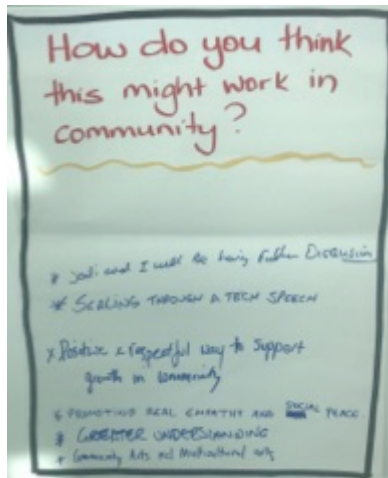 How do you think
this might work in
community?
* and I will be having further Discussion
* SCALING THROUGH A TECH SPEECH
x Positive & respectful way to support
growth in community
* PROMOTING REAL EMPATHY AND SOCIAL PEACE.
* GREATER UNDERSTANDING
+ Community Arts and Multicultural arts